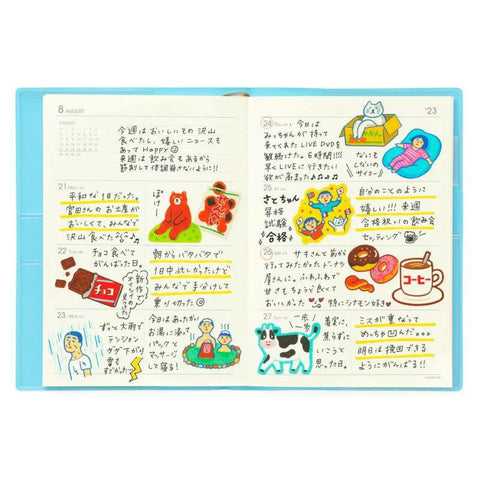 8 AUGUST
今週はおいしいもの沢山
食べたし、嬉しいニュースも
あってHappy
来週は飲み会もあるから
節制して体調崩さないように!!
21 Mon
平和な1日だった。
宮田さんのお土産が
おいしくて、みんなで
沢山食べた
ぼけー
22 Tue
チョコ食べて
がんばった日。
チョコ
新作で
オイシイの
見つけた
朝からバタバタで
1日中忙しかったけど
みんなで手分けして
乗りきった
23 Wed
ずっと大雨で
テンション
ダダ下がり
雷も
すごかった
今日はあったかい
お湯に浸って
パックとマッサージ
して寝る!
'23
24 Thu
今日は
みっちゃんが持って
来てくれたLIVE DVDを
観続けた。6時間!!!
早くLIVEに行きたい
欲が高まった
みかん
なにも
しないの
サイコー
25 Fri
さとちゃん
昇格
試験
合格
自分のことのように
嬉しい!!!来週
合格祝いの飲み会
セッティング
26 Sat
サキさんと前から
行ってみたかったドーナツ
屋さんに。ふわふわで
甘さもちょうど良くて
おいしかった 特にシナモン好き
コーヒー
27 Sun
一歩一歩
着実に、
焦らずに
いこうと
思った日。
ミスが重なって
めっちゃ凹んだ。。。
明日は挽回できる
ようにがんばる!!